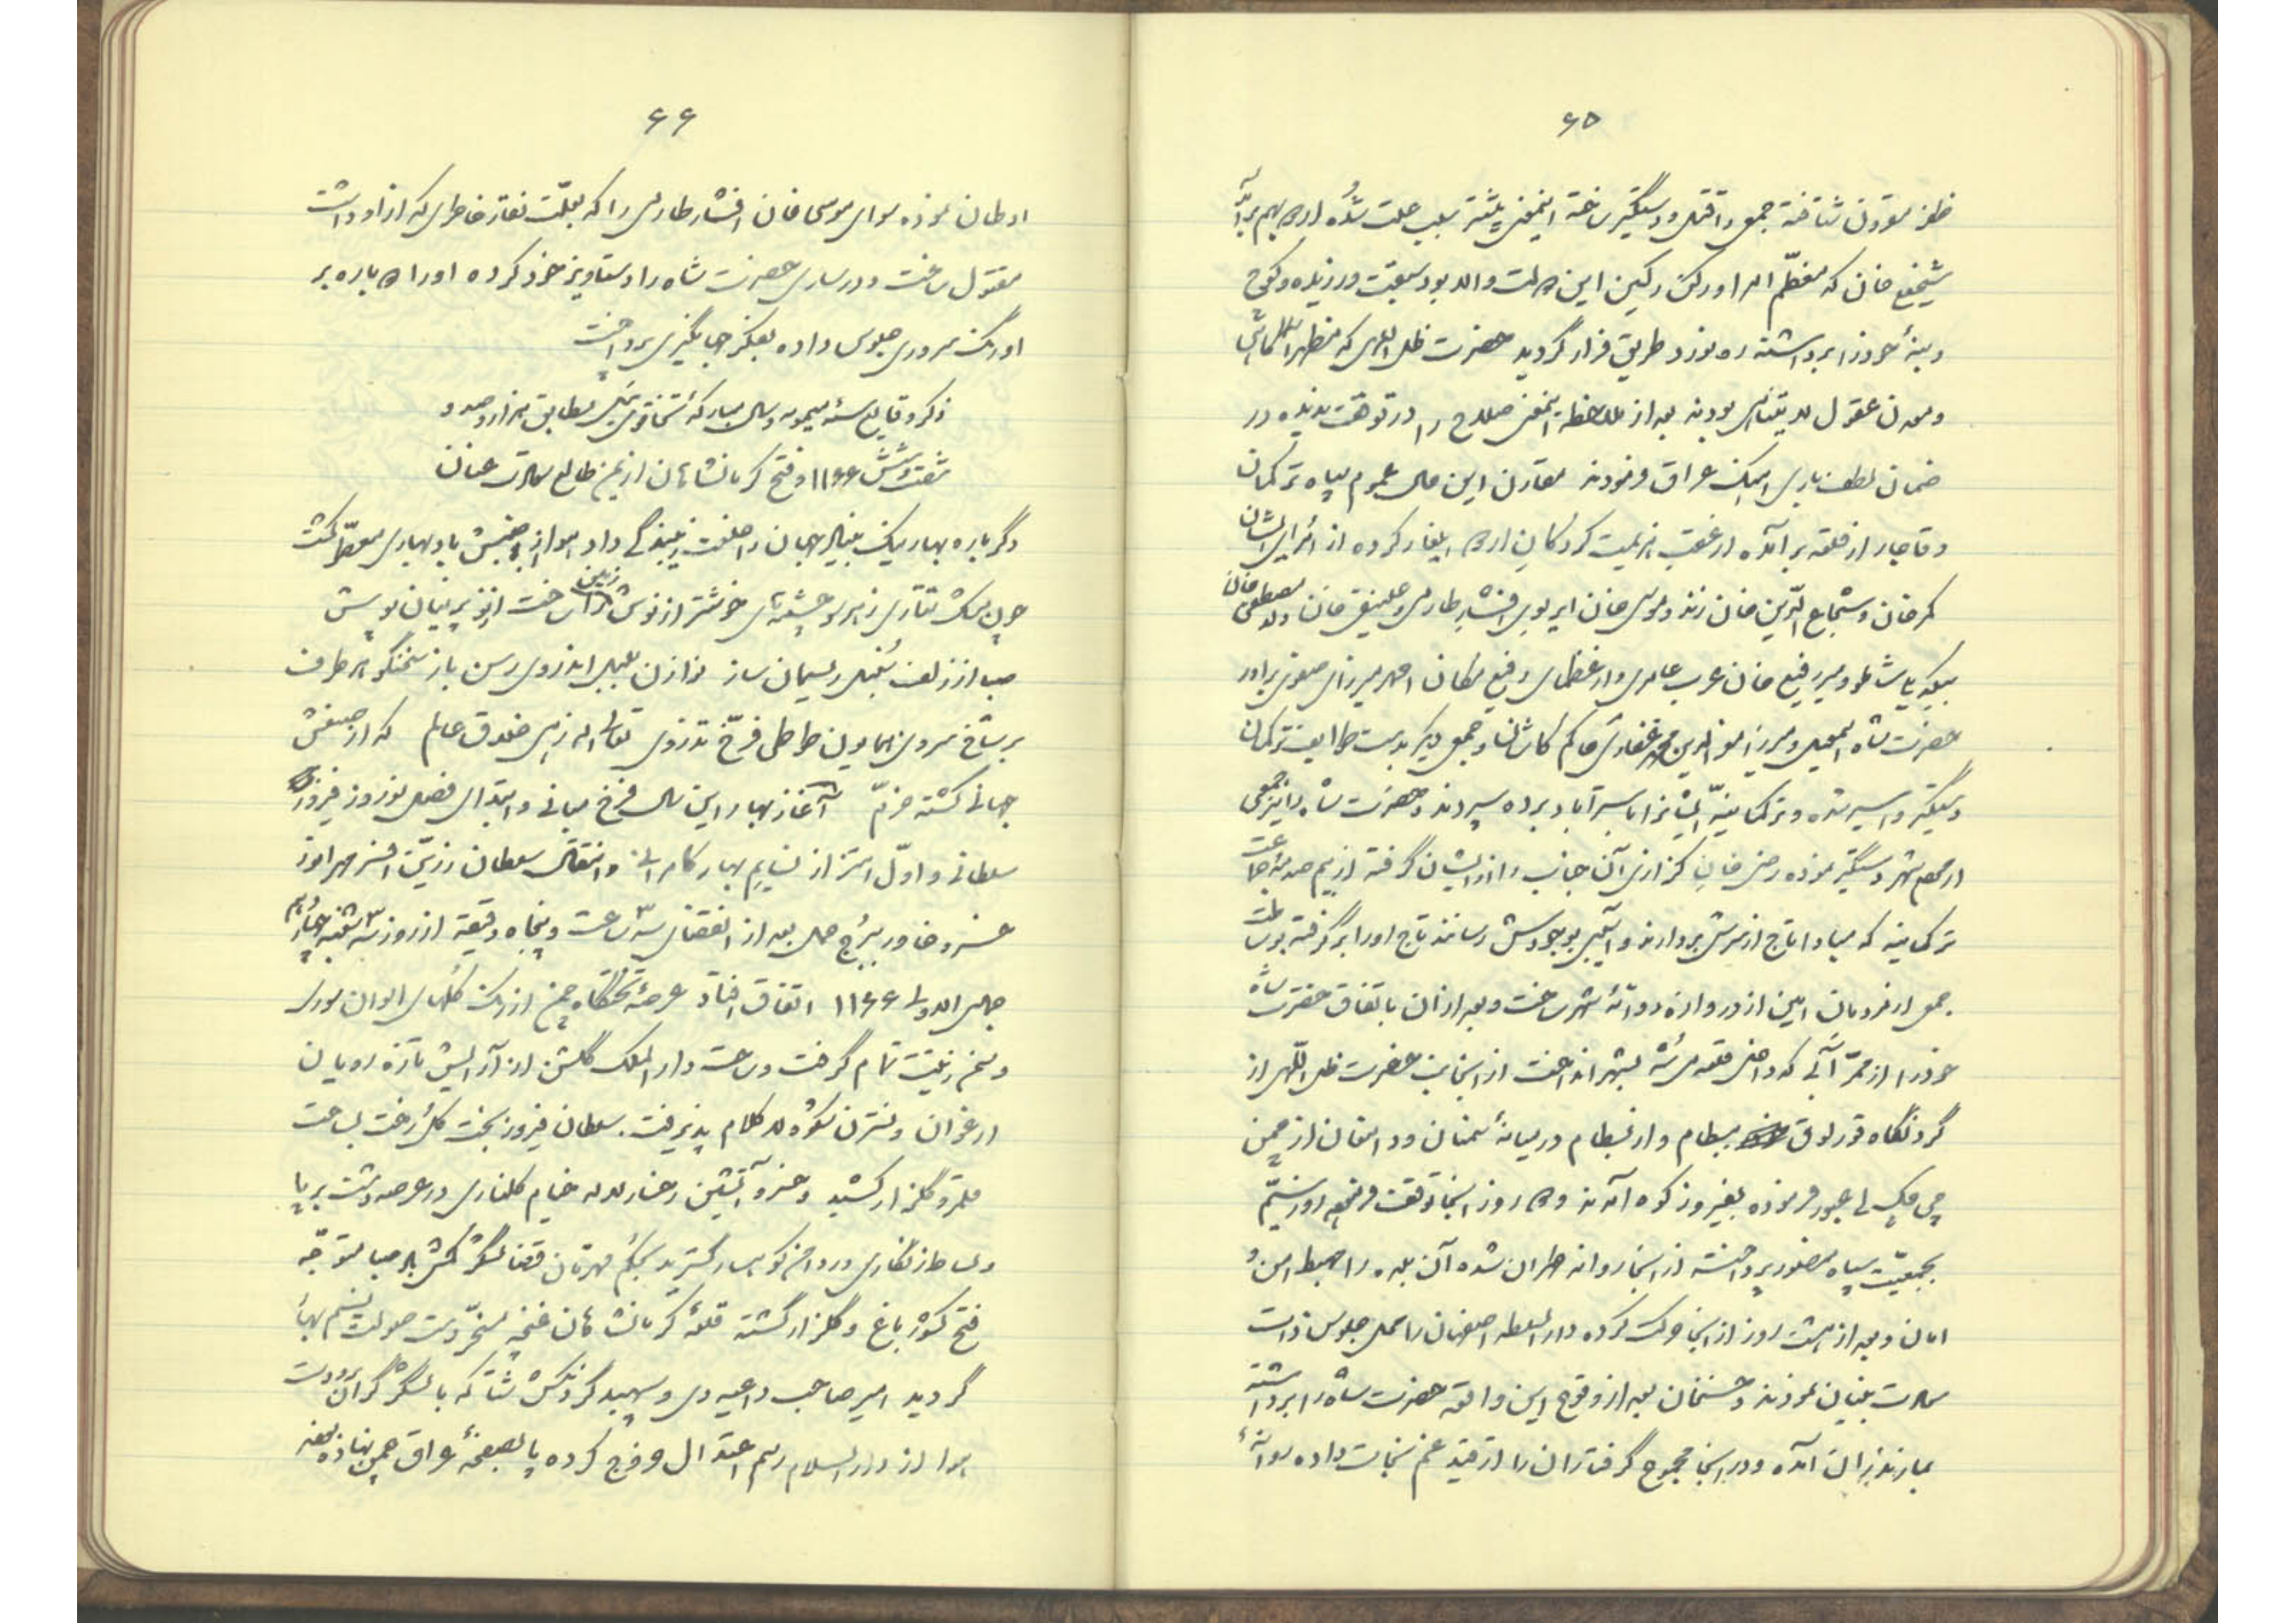 ۶۵
ظفر مقرون شتافته جمعی را قتل و دستگیر ساخته اینمعنی بیشتر سبب علت شده اردو بهم برآمد
شیخعلی خان که معظم امرا و رکن رکین این دولت والا بود سبقت ورزیده کوچ
و بنهٔ خود را برداشته ره نورد طریق فرار گردید حضرت ظل اللهی که مظهر
و معدن عقول لایتناهی بودند بعد از ملاحظه اینمعنی صلاح را در توقف ندیده در
ضمان لطف باری آهنگ عراق فرمودند مقارن این حال عموم سپاه ترکمان
و قاجار از قلعه برآمده از عقب هزیمت کردگان اردو ایلغار کرده از امرای ایشان
کرمخان و شجاع الدین خان زند و موسی خان ایرلوی افشار طارمی و علینقی خان ولد مصطفی خان
بیگدلی شاملو و میر رفیع خان عرب عامری و از عظمای رفیع مکان احمد میرزای صفوی برادر
حضرت شاه اسمعیل و میرزا معزالدین محمد غفاری حاکم کاشان و جمعی دیگر بدست طوایف ترکمان
دستگیر و اسیر شده و ترکمانیه ایشان را باسترآباد برده سپردند و حضرت شاه را نیز جمعی
از مردم شهر دستگیر نموده رضی خان کزازی آن جناب را از ایشان گرفته از بیم صدمهٔ جماعت
ترکمانیه که مبادا تاج از سرش بردارند و آسیبی بوجودش رسانند تاج او را برگرفته بوساطت
جمعی از مردمان امین از دروازه روانهٔ شهر ساخت و بعد از آن باتفاق حضرت شاه
خود را از ممر آبی که داخل قلعه می‌شد بشهر انداخت از اینجانب حضرت ظل اللهی از
گردنگاه قوزلوق ببسطام و از بسطام در میانهٔ سمنان و دامغان از چمن
علی عبور فرموده بفیروز کوه آمدند و ده روز آنجا توقف فرموده او نسیم
بجمعیت سپاه منصور پرداخته از آنجا روانه طهران شده آن بلده را مهبط امن و
امان و بعد از هشت روز از آنجا حرکت کرده دارالسلطنه اصفهان را محل جلوس ذات
سعادت بنیان نمودند و حسنخان بعد از وقوع این واقعه حضرت شاه را برداشته
بمازندران آمده و در آنجا مجموع گرفتاران را از قید غم نجات داده روانهٔ
۶۶
اوطان نموده سوای موسی خان افشار طارمی را که بعلت نقار خاطری که از او داشت
مقتول ساخت و در ساری حضرت شاه را دستاویز خود کرده او را دوباره بر
اورنگ سروری جلوس داده بفکر جهانگیری پرداخت
ذکر وقایع سنهٔ میمونه و سال مبارکه تخاقوی ئیل مطابق هزار و صد و
شصت و شش ۱۱۶۶ و فتح کرمانشاهان از یمن طالع سعادت عنان
دگر باره بهار نیک بنیاد جهان را خلعت زیبندگی داد هوا از جنبش باد بهاری معطر گشت
چون مشک تتاری زهر سو چشمه‌ای خوشتر از نوش زمین را ساخت از نو پرنیان پوش
صبا از زلف سنبل ریسمان ساز نوازن بلبل اندر وی رسن باز سخنگو هر طرف
بر شاخ سروی همایون طوطی فرخ تذروی تعالی الله زهی خلاق عالم که از صنعش
جهانی گشته خرم آغاز بهار این سال فرخ مبانی و ابتدای فصل نوروز فیروز
سلطانی و اول اهتزاز نسایم بهار کامرانی و انتقال سلطان زرین افسر مهر انور
خسرو خاور ببرج حمل بعد از انقضای سه ساعت و پنجاه دقیقه از روز سه شنبه چهاردهم
جمادی الاولی ۱۱۶۶ اتفاق افتاد عرصهٔ تختگاه چمن از رنگ گلهای الوان سوری
و سمن زینت تمام گرفت و ساحت دارالملک گلشن از آرایش تازه رویان
ارغوان و نسترن شکوه لاکلام پذیرفت. سلطان فیروز بخت گل رخت بساحت
قلمرو گلزار کشید و خسرو آتشین رخسار لاله خیام گلناری در عرصه دشت بر پا
و بساط زنگاری در دامن کوهسار گسترید بحکم قهرمان قضا لشکرکش صبا متوجه
فتح کشور باغ و گلزار گشته قلعهٔ کرمانشاهان غنچه مسخر دست صولت نسیم بهار
گردید امیر صاحب داعیه دی و سپهبد گردنکش شتا که با لشکر گران برودت
هوا از دارالسلام رسم اعتدال خروج کرده پا بصفحهٔ عراق چمن نهاده بقصد